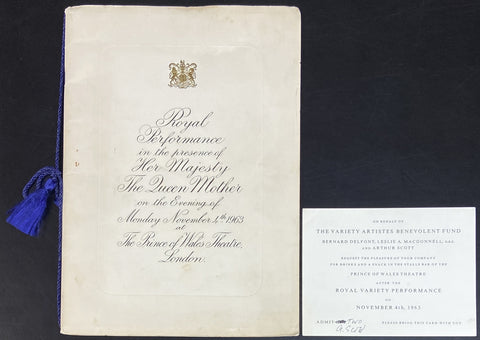 Royal
Performance
in the presence of
Her Majesty
The Queen Mother
on the Evening of
Monday November 4th 1963
at
The Prince of Wales Theatre,
London.
ON BEHALF OF
THE VARIETY ARTISTES BENEVOLENT FUND
BERNARD DELFONT, LESLIE A. MACDONNELL, O.B.E.
AND ARTHUR SCOTT
REQUEST THE PLEASURE OF YOUR COMPANY
FOR DRINKS AND A SNACK IN THE STALLS BAR OF THE
PRINCE OF WALES THEATRE
AFTER THE
ROYAL VARIETY PERFORMANCE
ON
NOVEMBER 4th, 1963
ADMIT TWO
PLEASE BRING THIS CARD WITH YOU